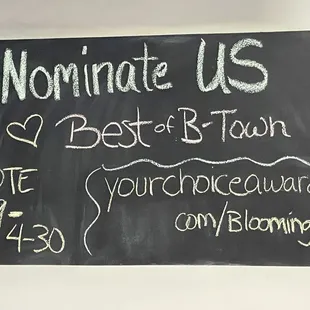 Nominate US
♡ Best of B-Town
OTE
9-
4-30
yourchoiceawar
com/Blooming